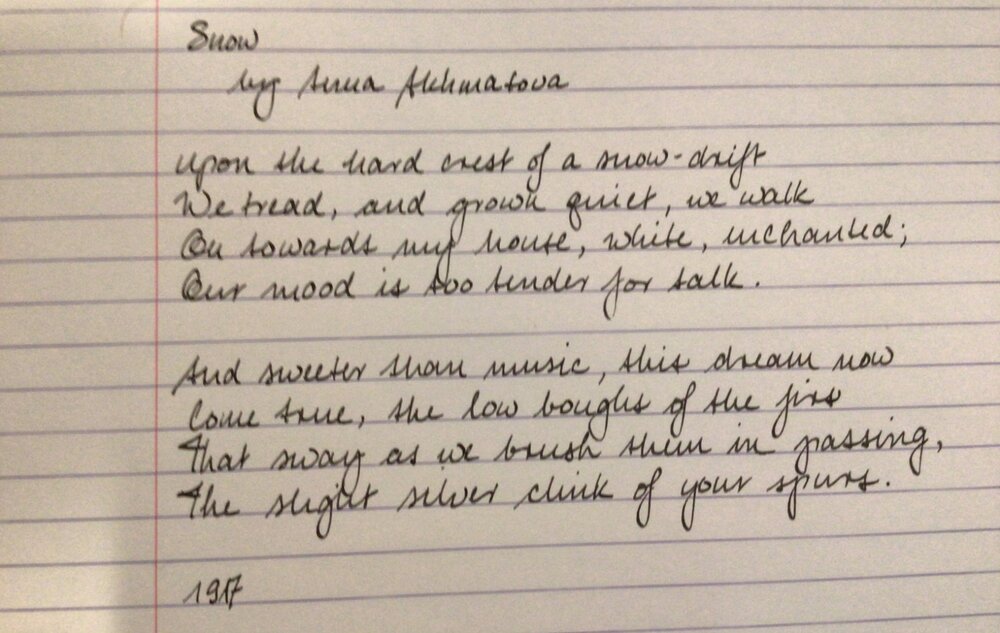 Snow
by Anna Akhmatova
Upon the hard crest of a snow-drift
We tread, and grown quiet, we walk
On towards my house, white, enchanted;
Our mood is too tender for talk.
And sweeter than music, this dream now
Come true, the low boughs of the firs
That sway as we brush them in passing,
The slight silver clink of your spurs.
1917